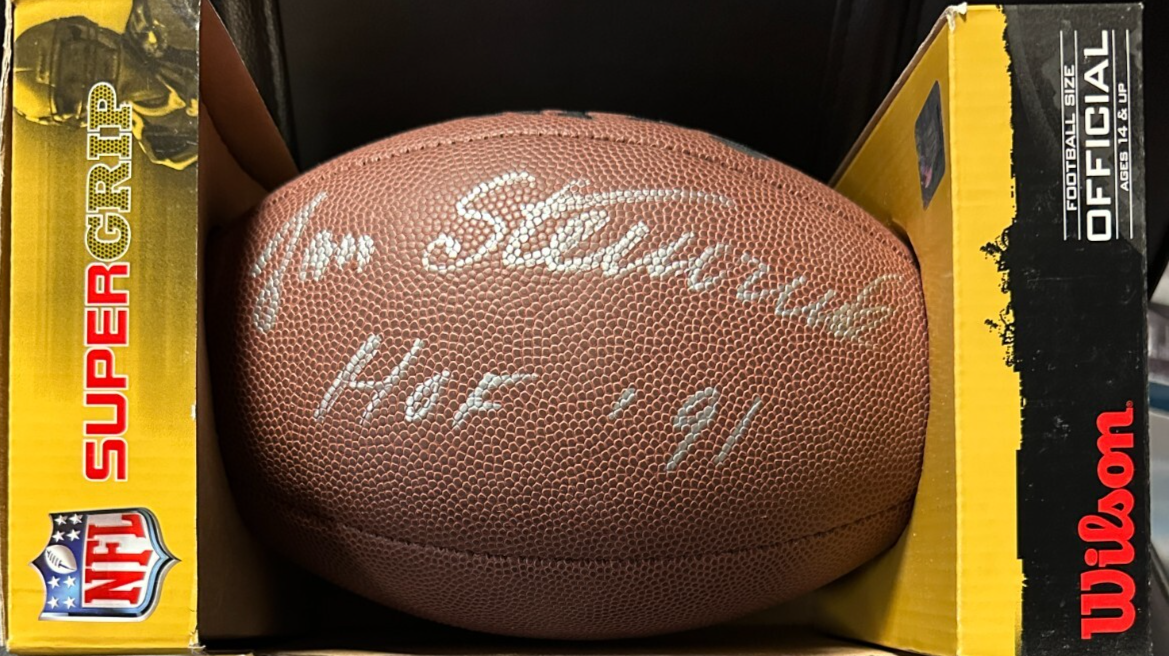 SUPERGRIP
NFL
Jan Stenerud
HOF '91
FOOTBALL SIZE
OFFICIAL
AGES 14 & UP
Wilson